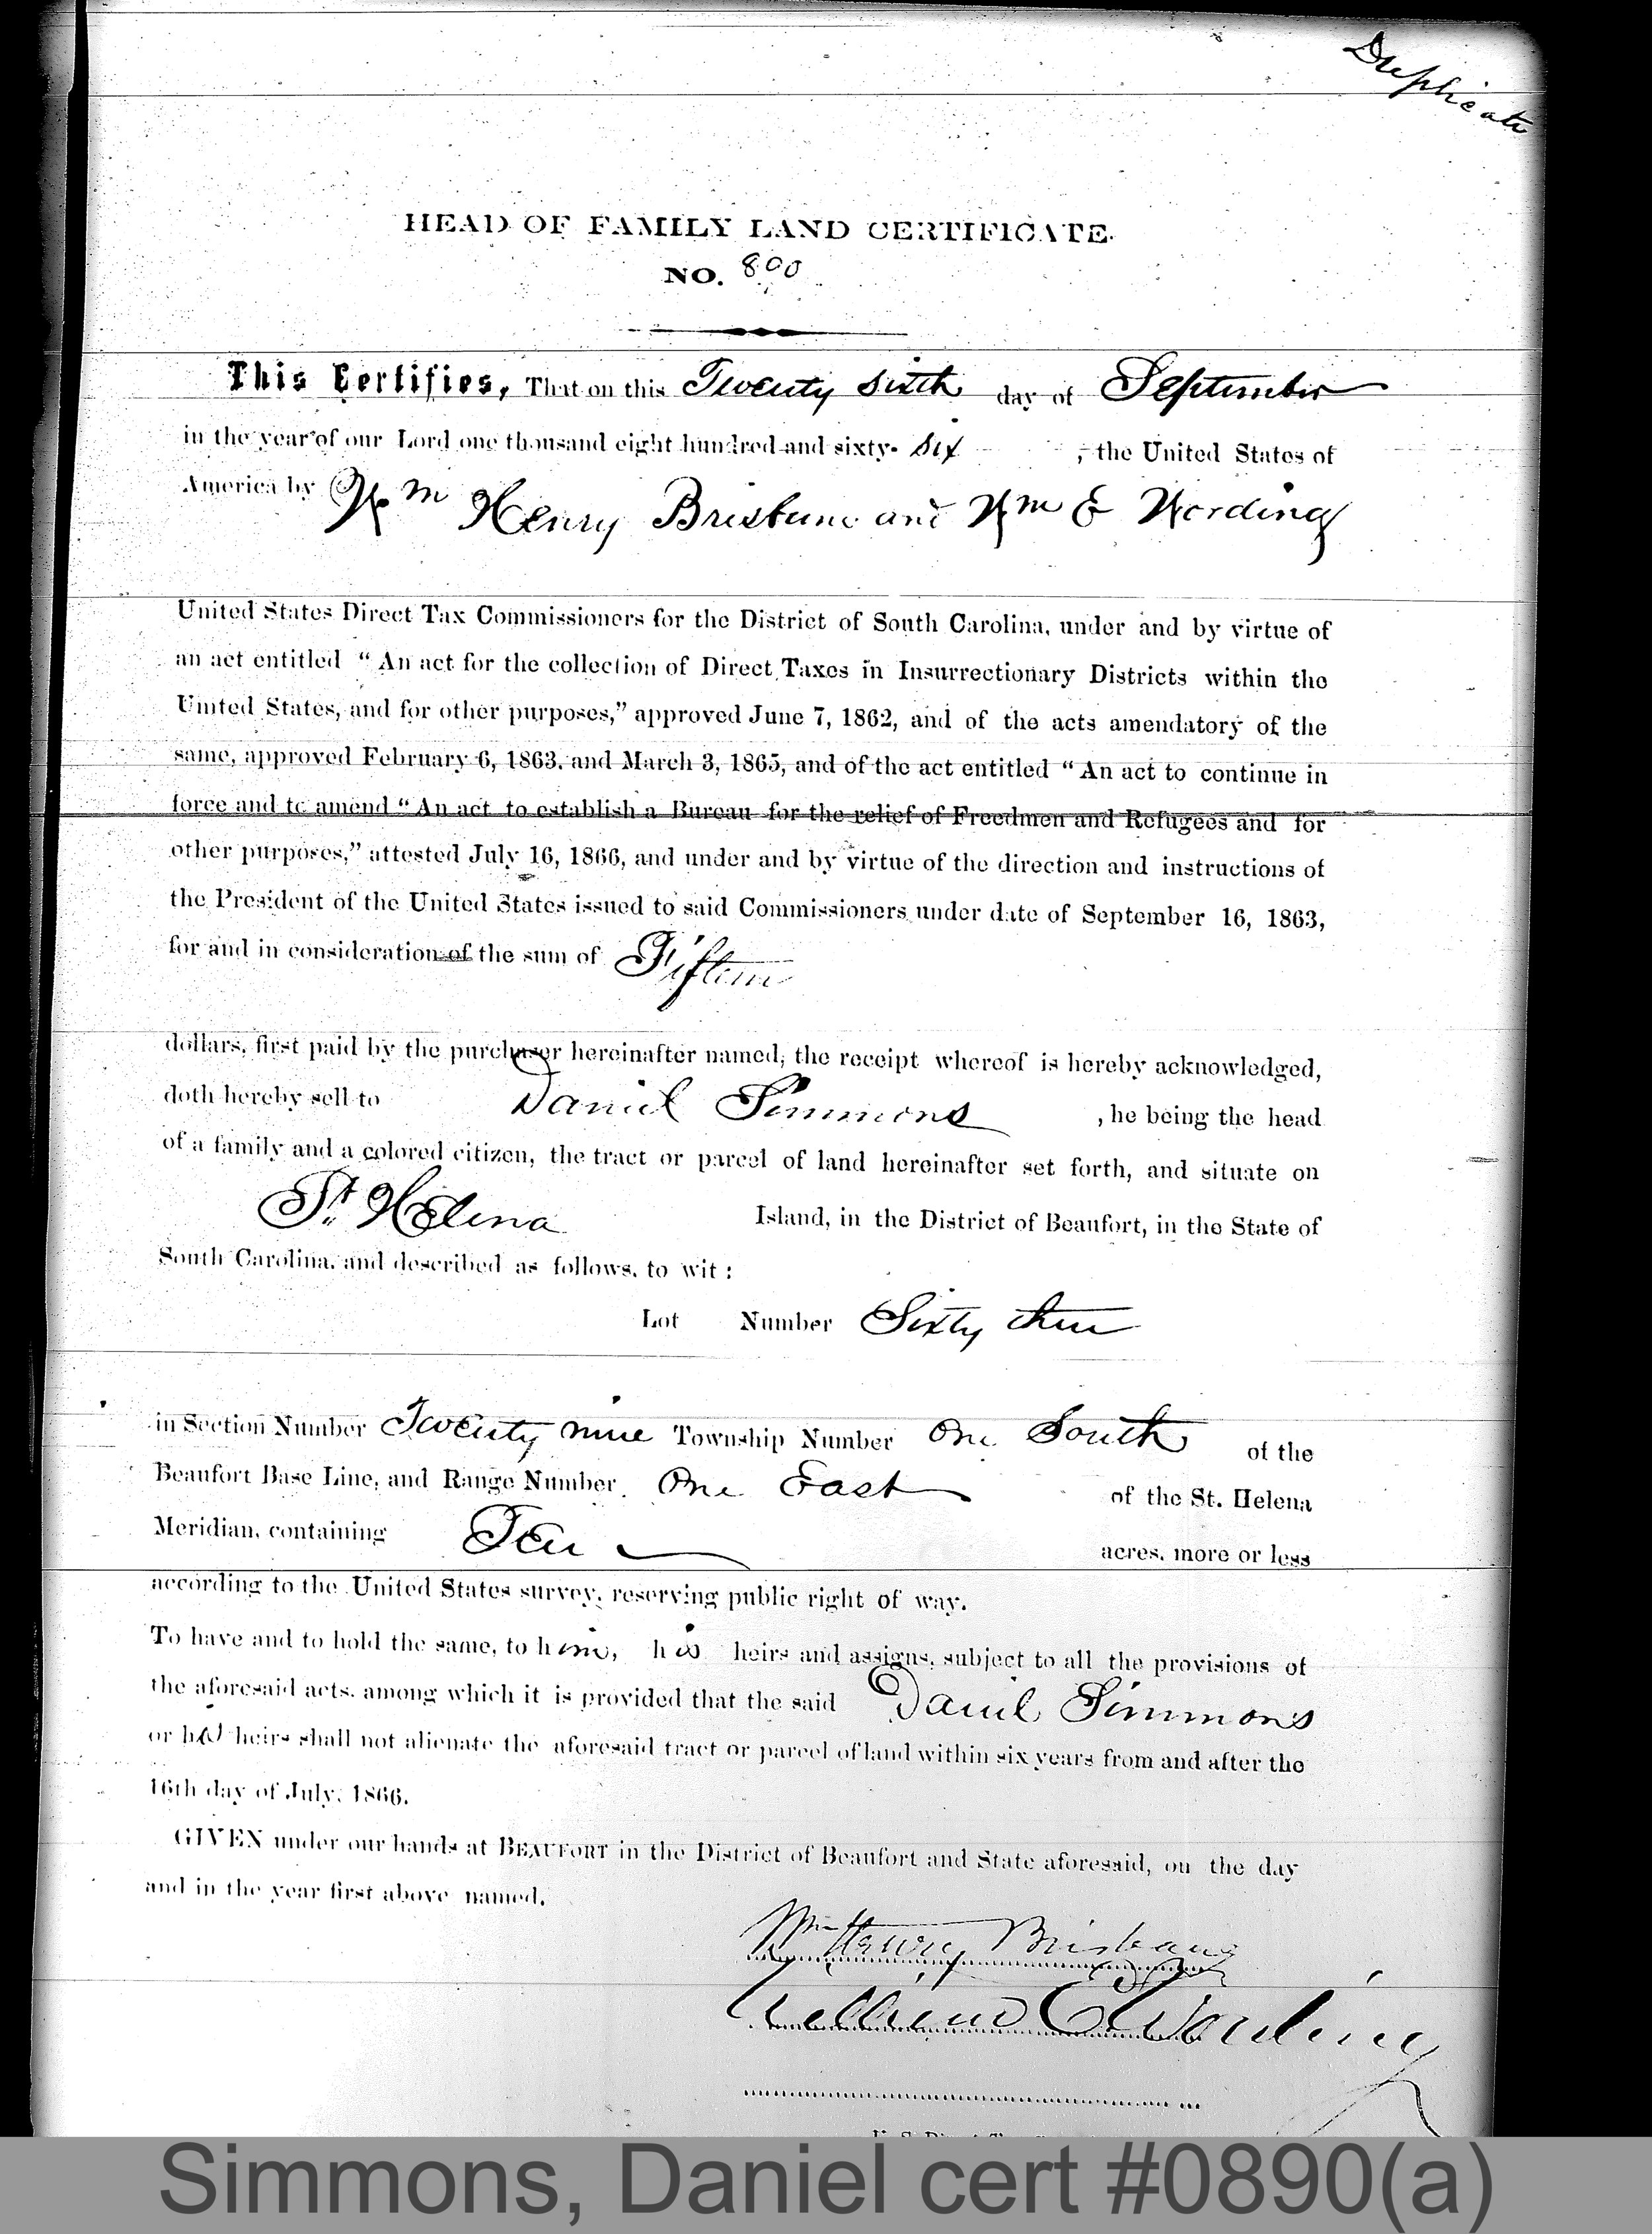 Duplicate
HEAD OF FAMILY LAND CERTIFICATE.
NO. 890
This Certifies, That on this Twenty sixth day of September
in the year of our Lord one thousand eight hundred and sixty- six , the United States of
America by Wm Henry Brisbane and Wm E Wording
United States Direct Tax Commissioners for the District of South Carolina, under and by virtue of
an act entitled "An act for the collection of Direct Taxes in Insurrectionary Districts within the
United States, and for other purposes," approved June 7, 1862, and of the acts amendatory of the
same, approved February 6, 1863, and March 3, 1865, and of the act entitled "An act to continue in
force and to amend "An act to establish a Bureau for the relief of Freedmen and Refugees and for
other purposes," attested July 16, 1866, and under and by virtue of the direction and instructions of
the President of the United States issued to said Commissioners under date of September 16, 1863,
for and in consideration of the sum of Fifteen
dollars, first paid by the purchaser hereinafter named, the receipt whereof is hereby acknowledged,
doth hereby sell to Daniel Simmons , he being the head
of a family and a colored citizen, the tract or parcel of land hereinafter set forth, and situate on
St. Helena Island, in the District of Beaufort, in the State of
South Carolina, and described as follows, to wit:
Lot Number Sixty three
in Section Number Twenty nine Township Number One South of the
Beaufort Base Line, and Range Number One East of the St. Helena
Meridian, containing Ten acres, more or less
according to the United States survey, reserving public right of way.
To have and to hold the same, to him, his heirs and assigns, subject to all the provisions of
the aforesaid acts, among which it is provided that the said Daniel Simmons
or his heirs shall not alienate the aforesaid tract or parcel of land within six years from and after the
16th day of July, 1866.
GIVEN under our hands at BEAUFORT in the District of Beaufort and State aforesaid, on the day
and in the year first above named.
Wm Henry Brisbane
William E Wording
Simmons, Daniel cert #0890(a)